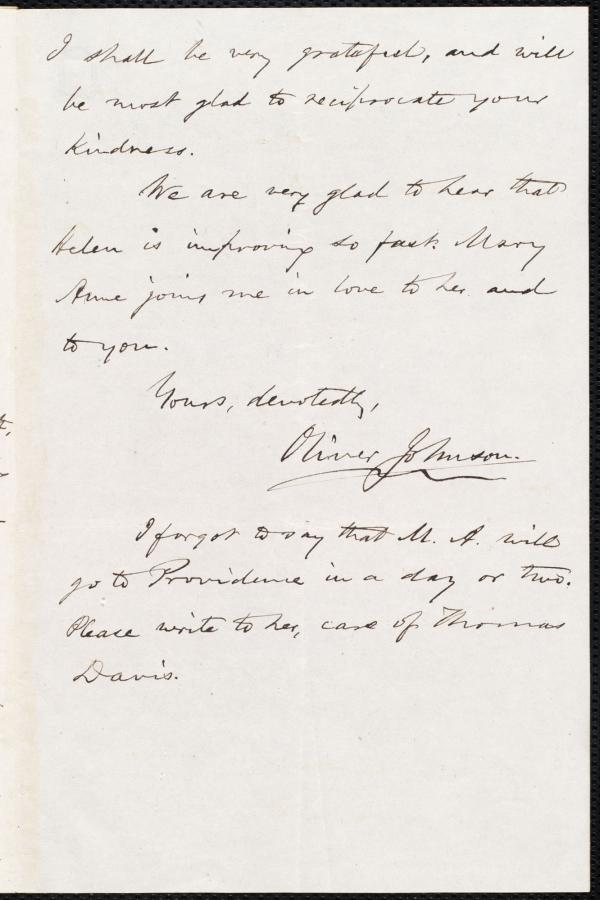 I shall be very grateful, and will
be most glad to reciprocate your
kindness.
We are very glad to hear that
Helen is improving so fast. Mary
Anne joins me in love to her and
to you.
Yours, devotedly,
Oliver Johnson.
I forgot to say that M. A. will
go to Providence in a day or two.
Please write to her, care of Thomas
Davis.